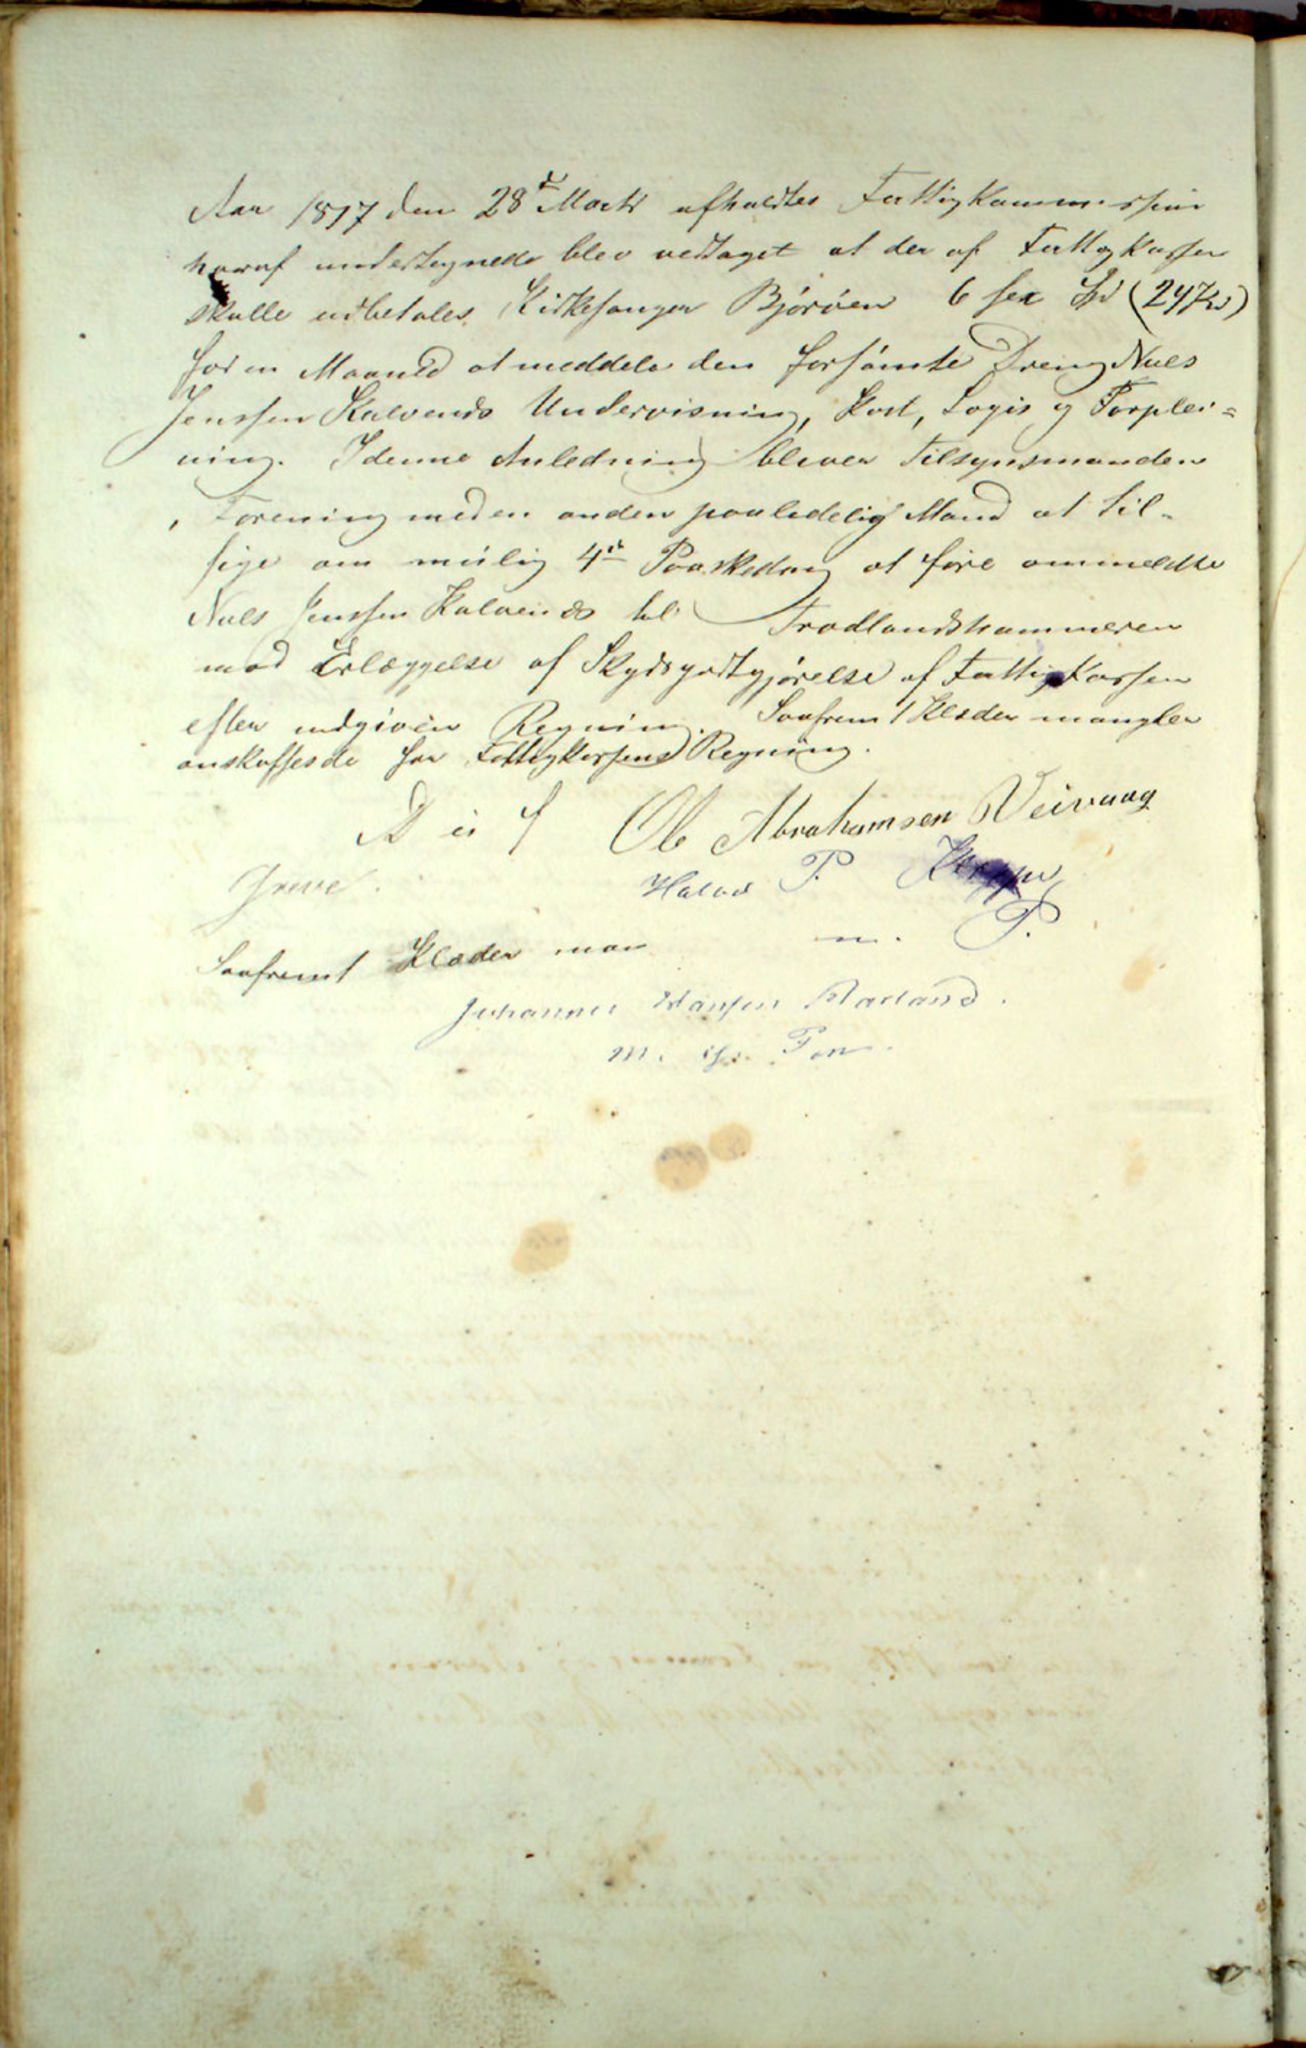 Aar 1877 den 28d Marts afholdtes Fattigkommission
hvoraf undertegnede blev vedtaget at der af Fattigkassen
skulle udbetales Kirkesanger Björöen 6 sex Spd (24 Kr)
for en Maaned at meddele den forsömte Dreng Niels
Jenssen Kalvenes Undervisning, Kost, Logis og Forplei=
ning. I denne Anledning bliver Tilsynsmanden
i Forening med en anden paalidelig Mand at til-
sige om mülig 4de Paaskedag at före ommeldte
Niels Jenssen Kalvenes til Trodlandshammeren
mod Erlæggelse af Skydsgodtgjörelse af Fattigkassen
efter indgiven Regning. Saafremt Klæder mangler
anskaffes de for Fattigkassens Regning.
Ole Abrahamsen Veivaag
Greve. Halvor P.
m. P.
Saafremt Klæder man
Johannes Hansen
m. f. P.